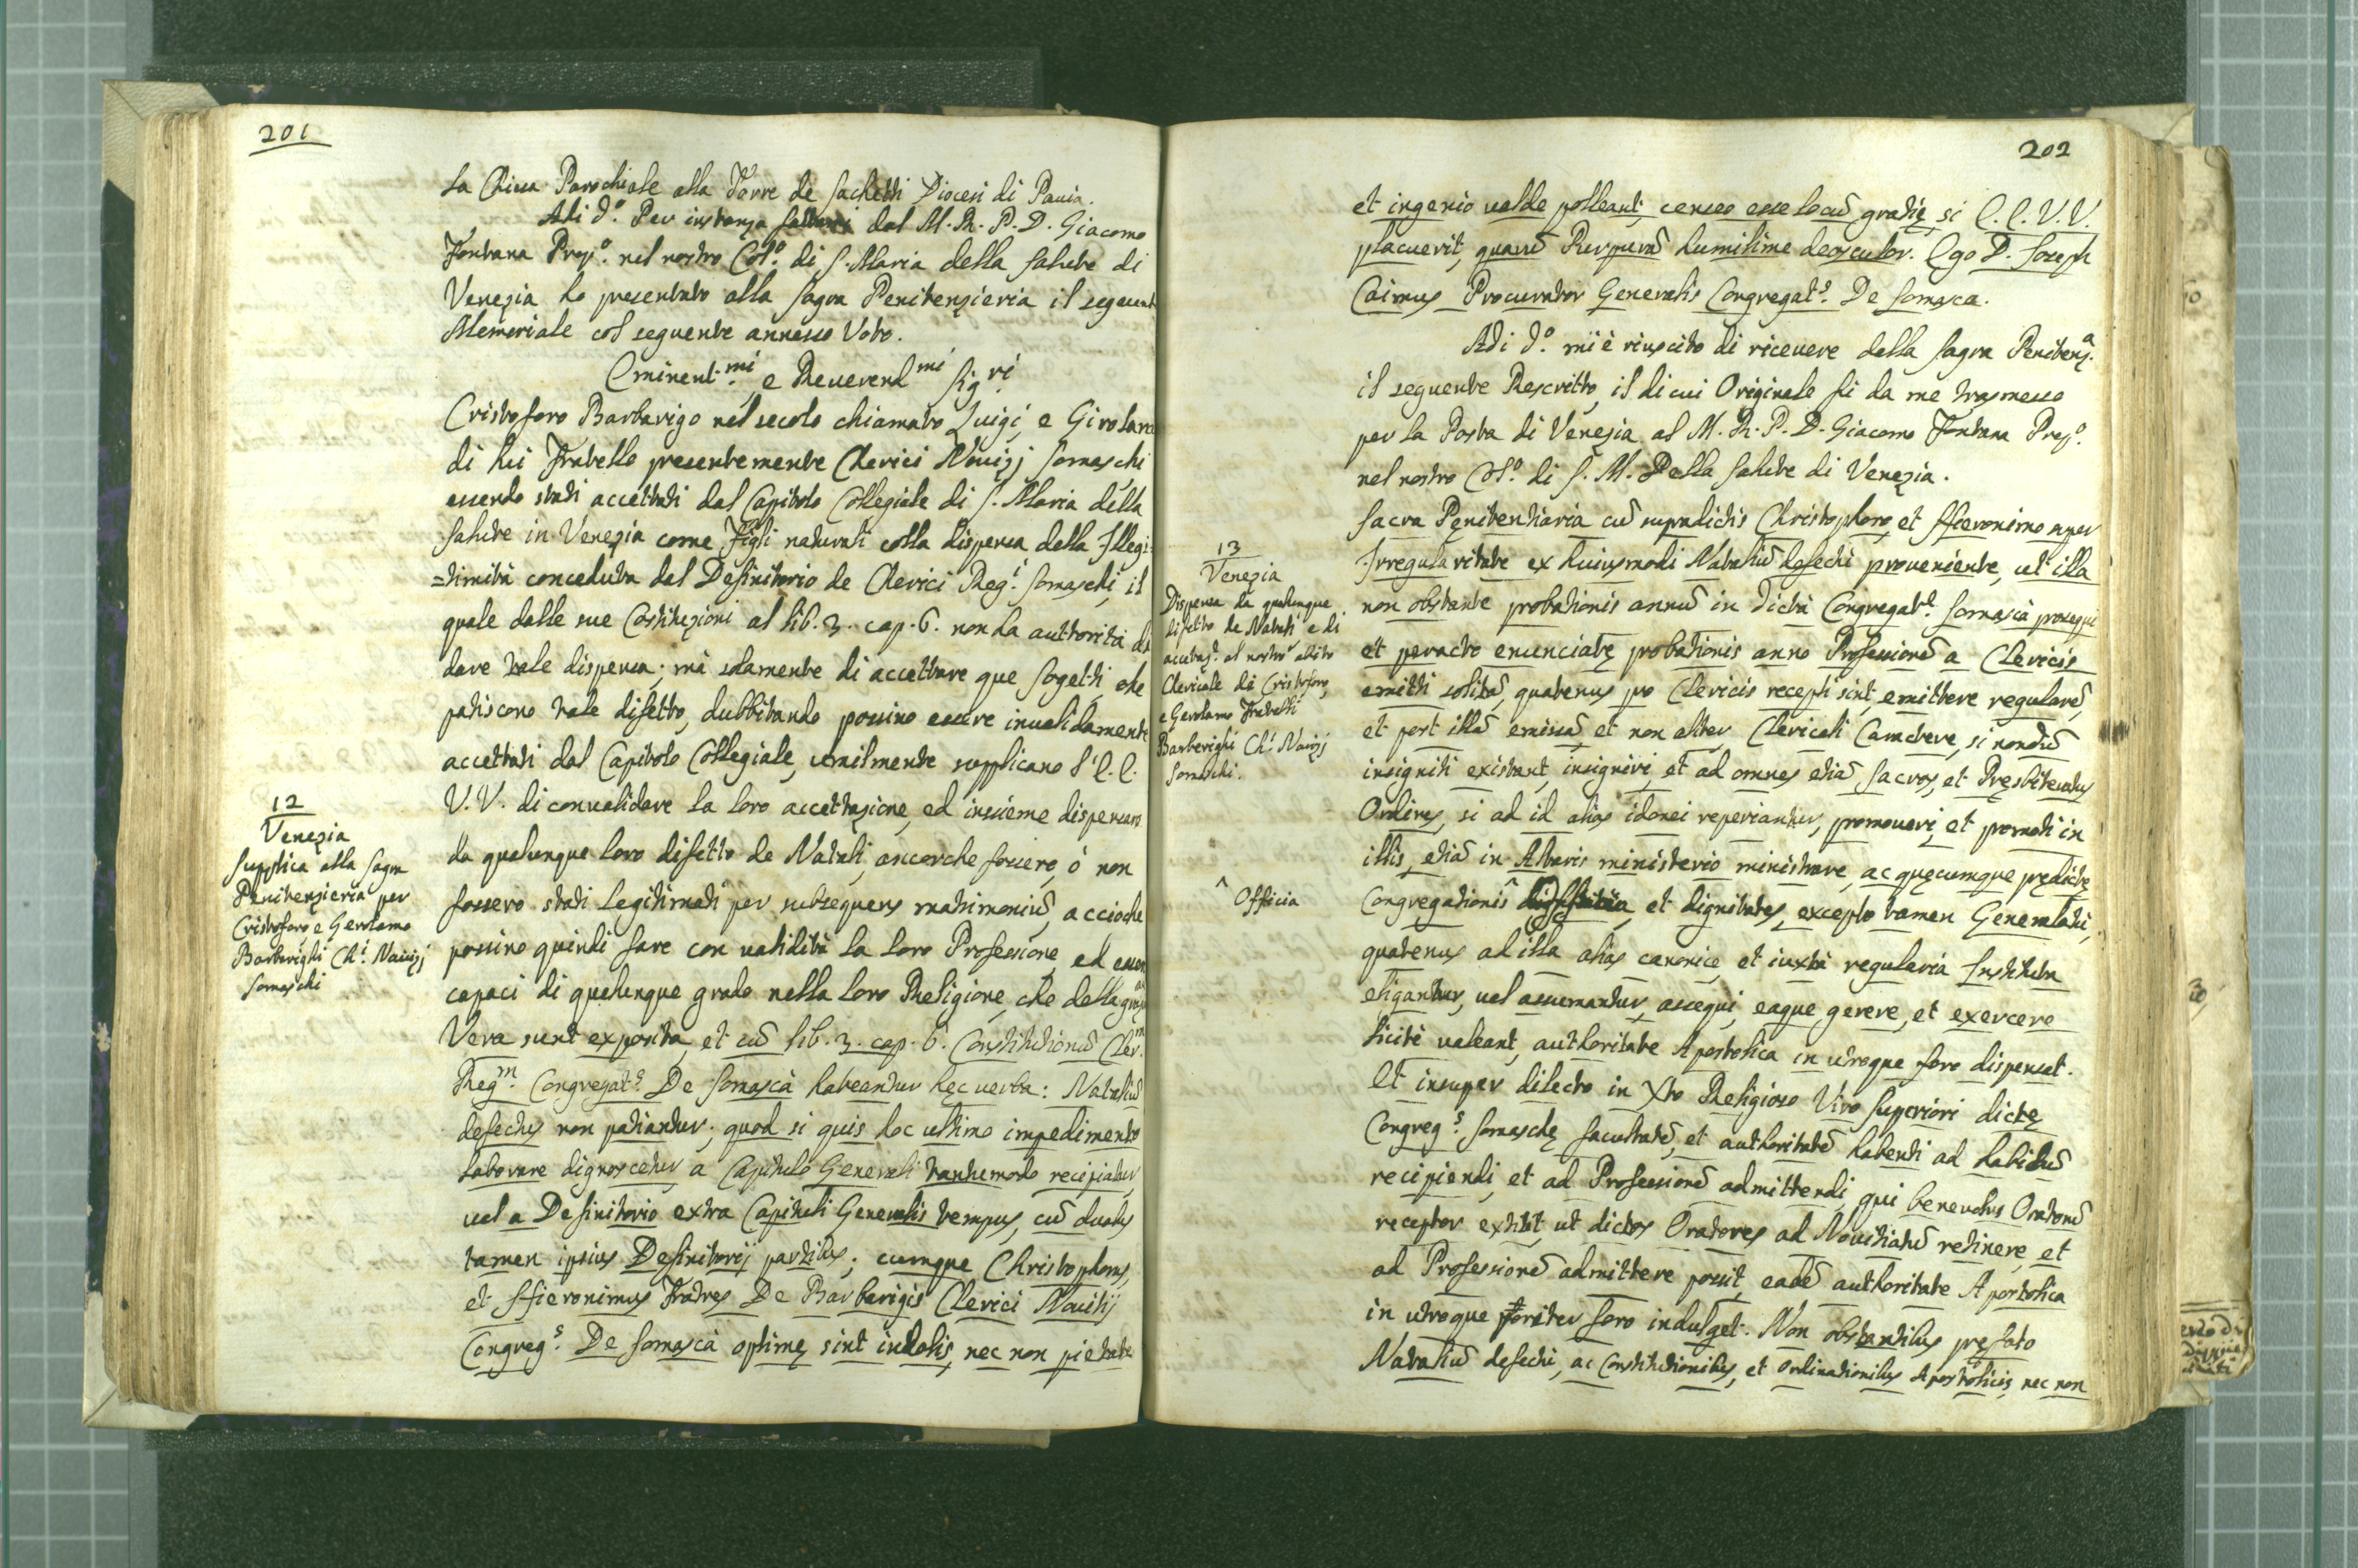 201
la Chiesa Parochiale alla Torre de Sachetti Diocesi di Pavia.
Adi d.º Per instanza fattami dal M. R. P. D. Giacomo
Fontana Prep.º nel nostro Col.º di S. Maria della Salute di
Venezia ho presentato alla Sagra Penitenzieria il seguente
Memoriale col seguente annesso Voto.
Eminent.mi e Reverend.mi Sig.ri
Cristoforo Barbarigo nel secolo chiamato Luigi, e Girolamo
di lui Fratello presentemente Chierici Novizj Somaschi
essendo stati accettati dal Capitolo Collegiale di S. Maria della
Salute in Venezia come Figli naturali colla dispensa della Illegi-
=timità conceduta dal Definitorio de Chierici Reg.i Somaschi, il
quale dalle sue Costituzioni al lib. 3. cap. 6. non ha authorità di
dare tale dispensa; mà solamente di accettare que sogetti, che
patiscono tale difetto, dubbitando possino essere invalidamente
accettati dal Capitolo Collegiale, umilmente supplicano l'E.E.
V.V. di convalidare la loro accettazione, ed insieme dispensare
da qualunque loro difetto de Natali, ancorche fossero, ò non
fossero stati legitimati per subsequens matrimoniū, accioche
possino quindi fare con validità la loro Professione, ed esser
capaci di qualunque grado nella loro Religione, che della gra.
12
Venezia
Supplica alla Sagra
Penitenzieria per
Cristoforo e Gerolamo
Barbarighi Ch.i Novizj
Somaschi
Vera sunt exposita, et cū lib. 3. cap. 6. Constitutionū Cler.m
Reg.m Congregat.s De Somascà habeantur hęc verba: Nataliū
defectus non patiantur; quod si quis hoc ultimo impedimento
laborare dignoscetur, a Capitulo Generali tantumodo recipiatur,
vel a Definitorio extra Capituli Generalis tempus, cū duabus
tamen ipsius Definitorij partibus; cumque Christophorus,
et Hieronimus Fratres De Barbarigis Clerici Novitij
Congreg.s De Somascà optimę sint indolis, nec non pietate
202
et ingenio valde polleant, censeo esse locū gratię, si E.E. V.V.
placuerit, quarū Purpurā humilime deosculor. Ego D. Joseph
Caimus Procurator Generalis Congregat.s De Somasca.
Adi d.º mi è riuscito di ricevere dalla Sagra Penitenz.a
il seguente Rescritto, il di cui Originale fù da me trasmesso
per la Posta di Venezia al M. R. P. D. Giacomo Fontana Prep.º
nel nostro Col.º di S. M. Della Salute di Venezia.
13
Venezia
Dispensa da qualunque
difetto de Natali e di
accetaz.e al nostro abito
Clericale di Cristoforo,
e Gerolamo Fratelli
Barberighi Ch.i Novizj
Somaschi.
Sacra Pęnitentiaria cū supradictis Christophoro, et Hieronimo super
Irregularitate ex huiusmodi Nataliū defectu proveniente, ut illa
non obstante probationis annū in dicta Congregat.e Somascà prosequi
et peracto enunciatę probationis anno Professionē a Clericis
emitti solitā, quatenus pro Clericis recepti sint, emittere regularē,
et post illā emissā, et non aliter Clericali Caractere, si nondū
insigniti existant, insigniri, et ad omnes etiā Sacros, et Pręsbiteratus
Ordines, si ad id alias idonei reperiantur, promoveri, et promoti in
illis, etiā in Altaris ministerio ministrare, ac quęcumque prędictę
Congregationis ^ et dignitates, excepto tamen Generalatu,
^ Officia
quatenus ad illa alias canonice, et iuxtà regularia Instituta
eligantur, vel assumantur, assequi, eaque gerere, et exercere
licitè valeant, authoritate Apostolica in utroque foro dispensat.
Et insuper dilecto in Xto Religioso Viro Superiori dictę
Congreg.s Somaschę facultatē, et authoritatē habenti ad habitū
recipiendi, et ad Professionē admittendi, qui benevolus Oratorū
receptor extitit, ut dictos Oratores ad Novitiatū retinere, et
ad Professionē admittere possit, eadē authoritate Apostolica
in utroque pariter foro indulget. Non obstantibus prefato
Nataliū defectu, ac Constitutionibus, et ordinationibus Apostolicis, nec non